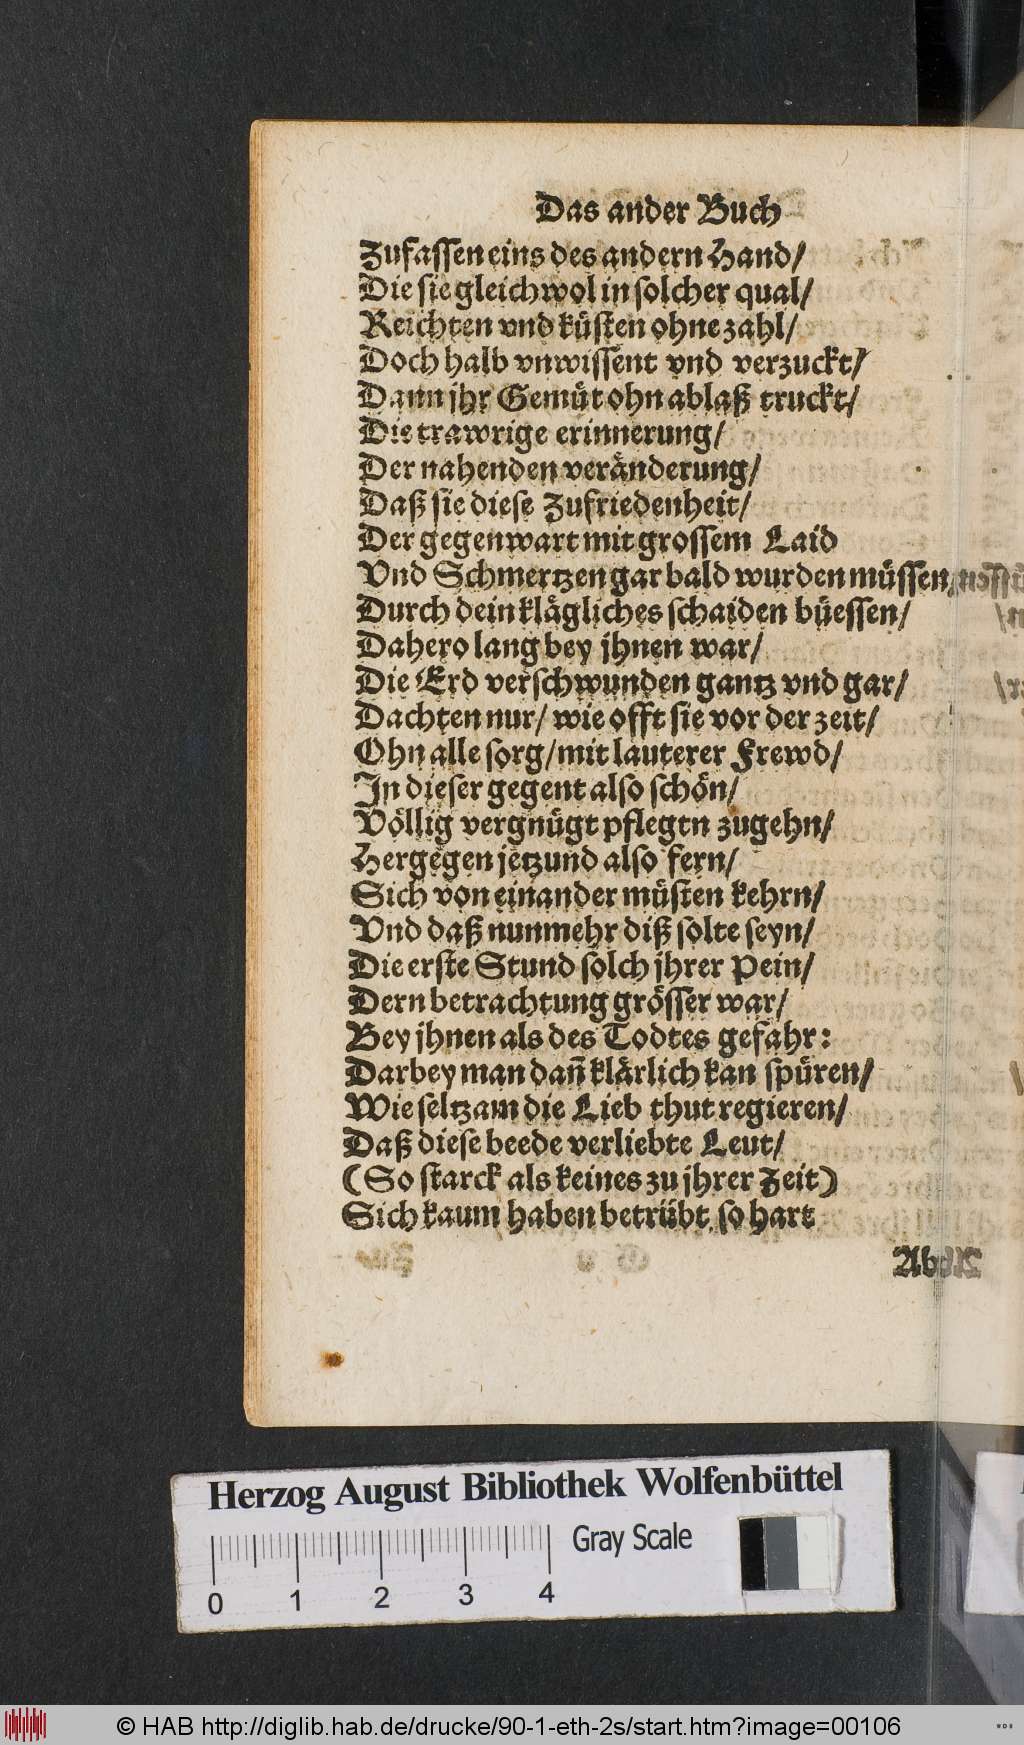 Das ander Buch
Zufassen eins des andern Hand/
Die sie gleichwol in solcher qual/
Reichten vnd küsten ohne zahl/
Doch halb vnwissent vnd verzuckt/
Dann jhr Gemüt ohn ablaß truckt/
Die trawrige erinnerung/
Der nahenden veränderung/
Daß sie diese Zufriedenheit/
Der gegenwart mit grossem Laid
Vnd Schmertzen gar bald wurden müssen/
Durch dein klägliches schaiden büessen/
Dahero lang bey jhnen war/
Die Erd verschwunden gantz vnd gar/
Dachten nur/ wie offt sie vor der zeit/
Ohn alle sorg/ mit lauterer Frewd/
In dieser gegent also schön/
Völlig vergnügt pflegtn zugehn/
Hergegen jetzund also fern/
Sich von einander müsten kehrn/
Vnd daß nunmehr diß solte seyn/
Die erste Stund solch jhrer Pein/
Dern betrachtung grösser war/
Bey jhnen als des Todtes gefahr:
Darbey man dañ klärlich kan spüren/
Wie seltzam die Lieb thut regieren/
Daß diese beede verliebte Leut/
(So starck als keines zu jhrer Zeit)
Sich kaum haben betrübt so hart
Herzog August Bibliothek Wolfenbüttel
Gray Scale
0 1 2 3 4
© HAB http://diglib.hab.de/drucke/90-1-eth-2s/start.htm?image=00106